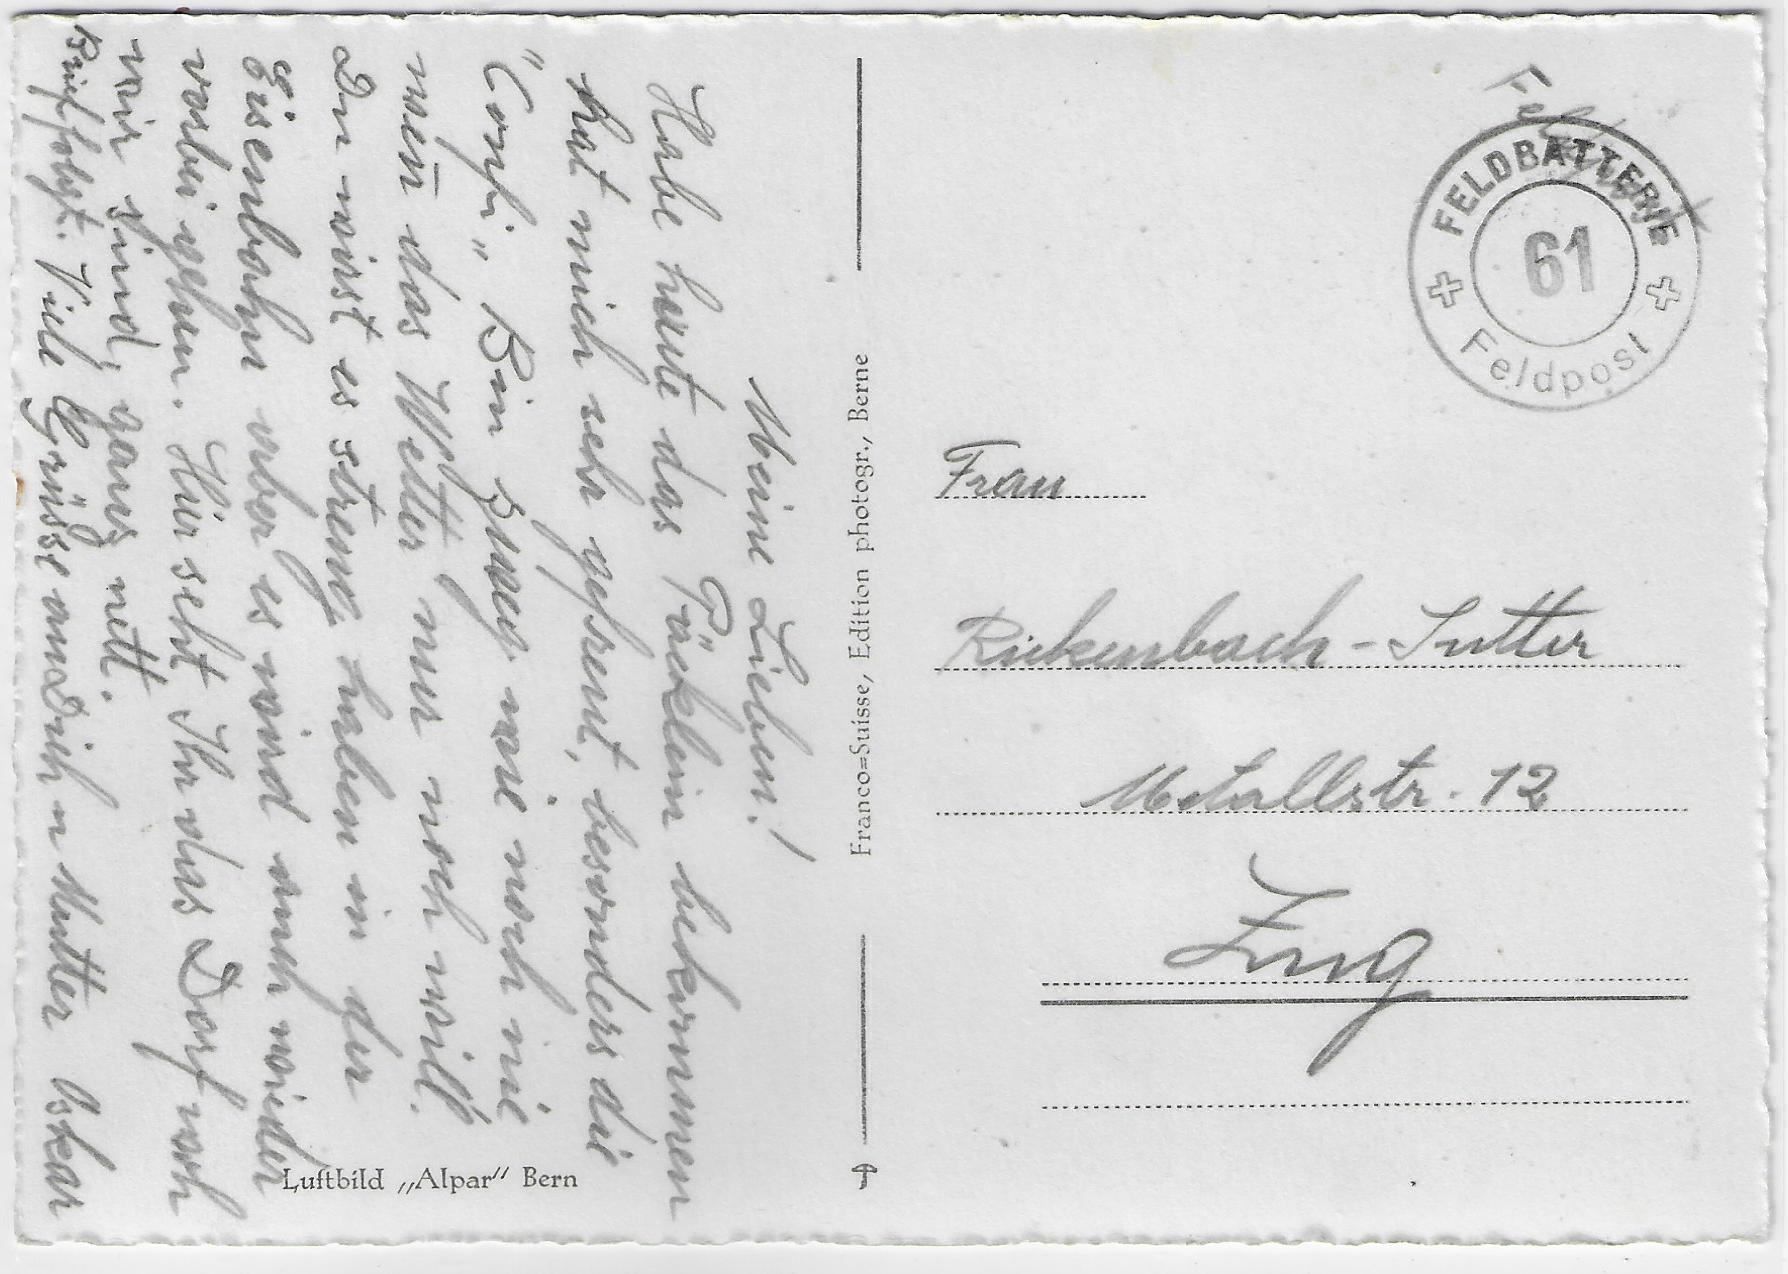 Meine Lieben!
Habe heute das Päcklein bekommen
hat mich sehr gefreut, besonders die
"Confi". Bin zwaeg wie noch nie
wenn das Wetter nur noch will.
Du wirst es streng haben in der
Eisenbahn aber es wird auch wieder
vorbei gehen. Hier seht Ihr das Dorf wo
wir sind, ganz nett.
Brief folgt. Viele Grüsse an Dich u Mutter Oskar
Luftbild „Alpar" Bern
Franco=Suisse, Edition photogr., Berne
Feldpost
FELDBATTERIE
61
Feldpost
Frau
Rickenbach-Sutter
Metallstr. 12
Zug